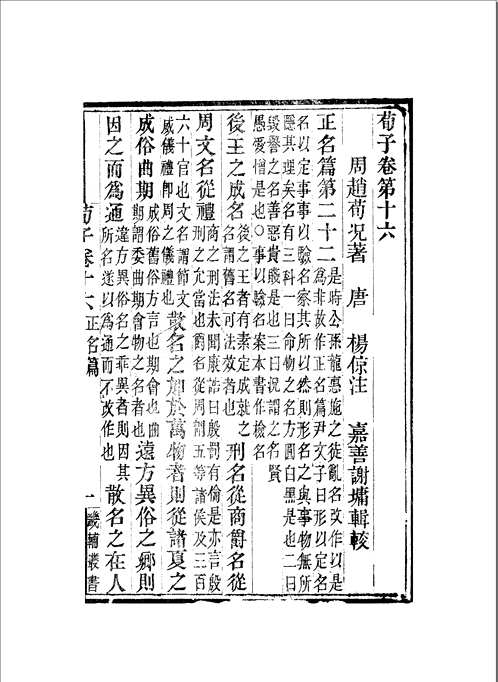 荀子卷第十六
周趙荀況著　唐　楊倞注　嘉善謝墉輯校
正名篇第二十二是時公孫龍惠施之徒亂名改作以是
為非故作正名篇尹文子曰形以定名
名以定事事以驗名察其所以然則形名之與事物無所
隱其理矣名有三科一曰命物之名方圓白黑是也二曰
毀譽之名善惡貴賤是也三曰況謂之名賢
愚愛憎是也○事以驗名案本書作檢名
後王之成名後之王者有素定成就之
名謂舊名可法效者也刑名從商爵名從
周文名從禮商之刑法未聞康誥曰殷罰有倫是亦言殷
刑之允當也爵名從周謂五等諸侯及三百
六十官也文名謂節文
威儀禮即周之儀禮也散名之加於萬物者則從諸夏之
成俗曲期成俗舊俗方言也期會也曲
期謂委曲期會物之名者也遠方異俗之鄉則
因之而為通違方異俗名之乖異者則因其
所名遂以為通而不改作也散名之在人
荀子卷十六正名篇　一　畿輔叢書